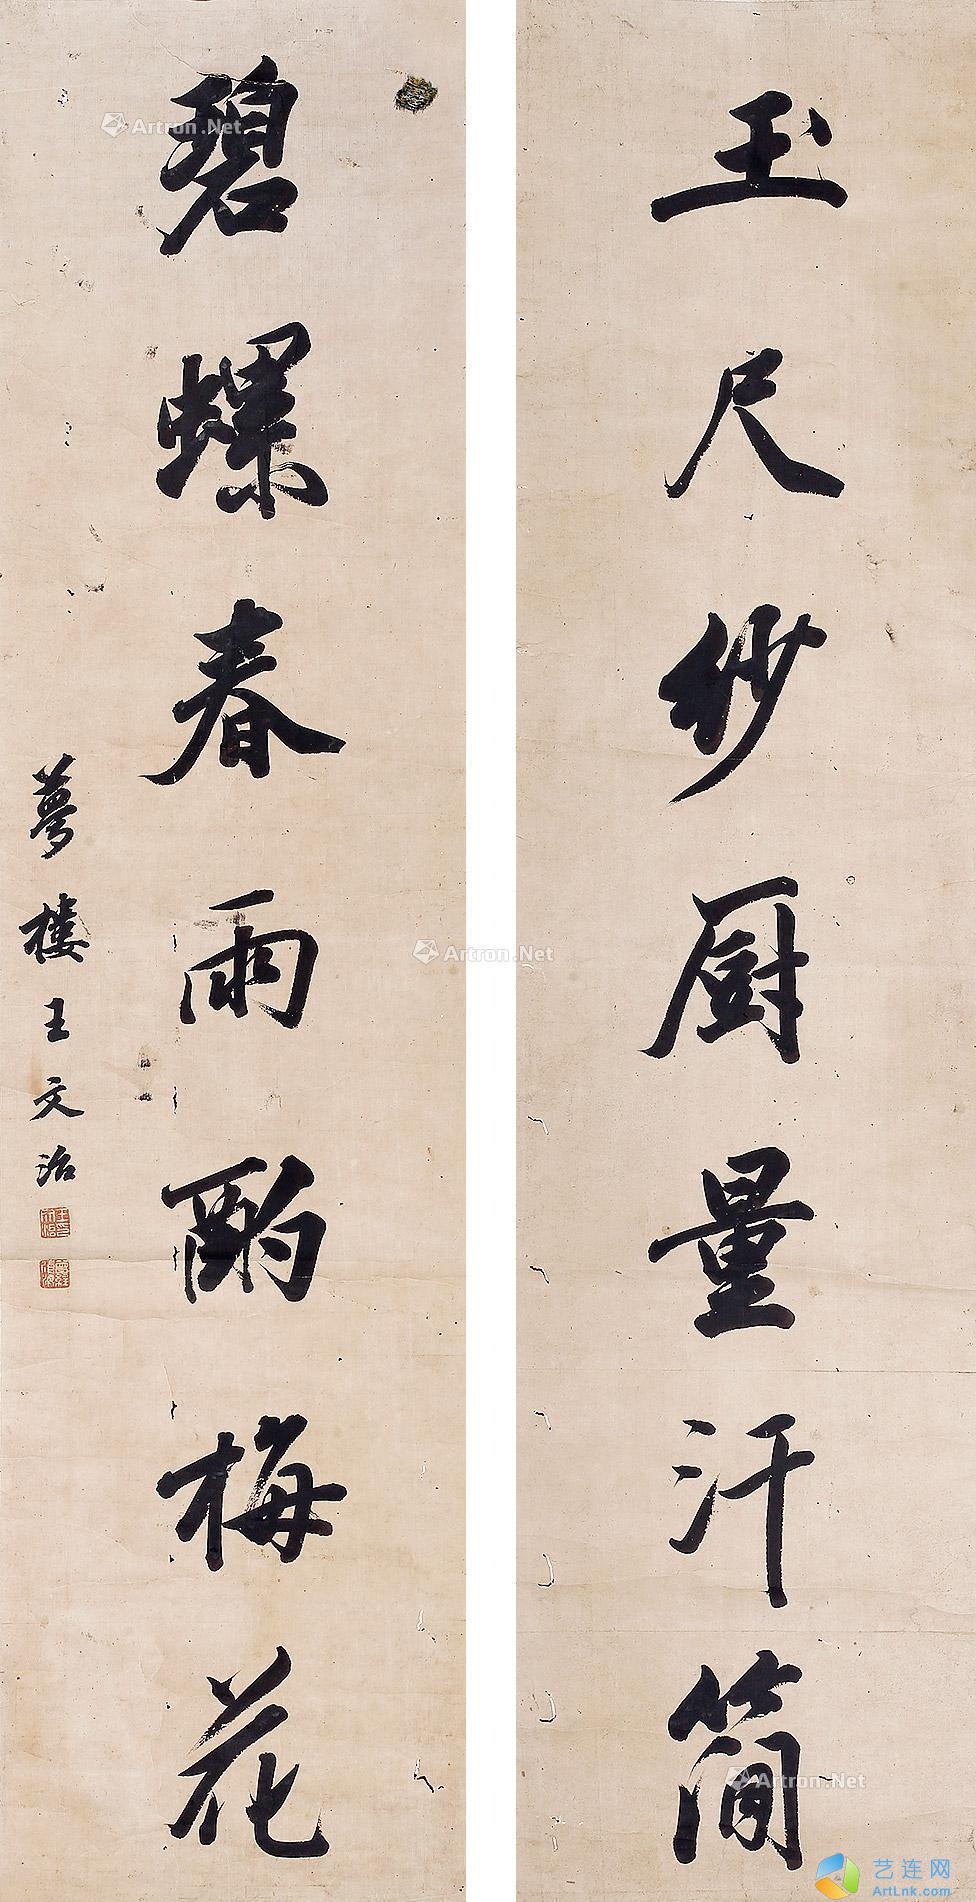 玉尺纱厨量汗简
碧螺春雨酌梅花
夢樓王文治
Artron.Net
Artron.Net
Artron.Net
艺连网
ArtLnk.com